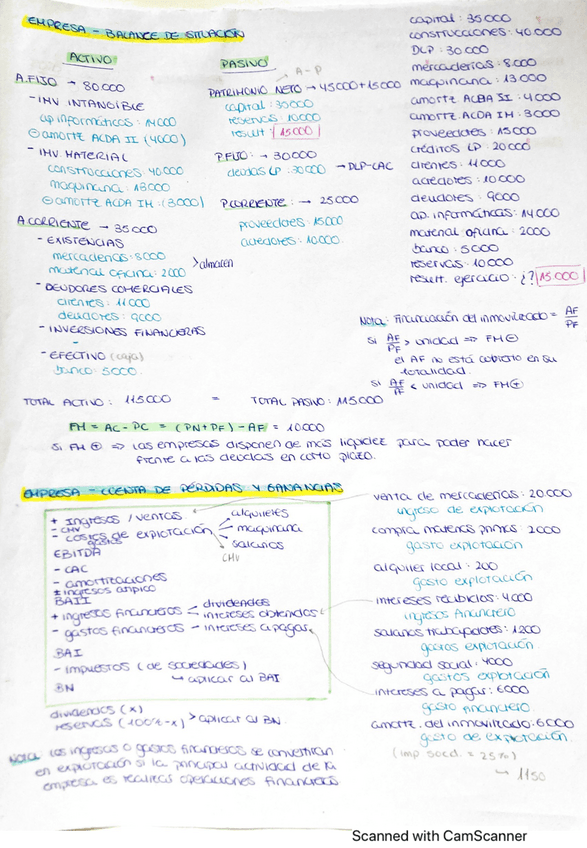 EMPRESA - BALANCE DE SITUACIÓN
ACTIVO
A.FIJO → 80000
- INV INTANGIBLE
ap informáticos: 14000
⊖ amortz ACDA II (4000)
- INV. MATERIAL
construcciones 40.000
maquinaria: 13000
⊖ amortz ACDA IM: (3000)
A.CORRIENTE → 35000
- EXISTENCIAS
mercaderías: 8000
material oficina: 2000
> almacén
- DEUDORES COMERCIALES
clientes: 11000
deudores: 9000
- INVERSIONES FINANCIERAS
-
- EFECTIVO (caja)
banco: 5000.
PASIVO
A-P
PATRIMONIO NETO → 45000+15000
capital: 35000
reservas: 10000
result: 15000
P.FIJO: → 30000
deudas LP: 30000 → DLP-CAC
P.CORRIENTE: → 25000
proveedores: 15000
acreedores: 10.000.
capital: 35000
construcciones: 40.000
DLP: 30000
mercaderías: 8000
maquinaria: 13000
amortz. ACDA II: 4000
amortz. ACDA IM: 3000
proveedores: 15000
créditos LP: 20000
clientes: 11000
acreedores: 10000
deudores: 9000
ap. informáticas: 14000
material oficina: 2000
banco: 5000
reservas: 10000
result. ejercicio: ¿? 15000
Nota: Financiación del inmovilizado = AF/PF
Si AF/PF > unidad => FM ⊖
el AF no está cubierto en su
totalidad.
si AF/PF < unidad => FM ⊕
TOTAL ACTIVO: 115000 = TOTAL PASIVO: 115000
FM = AC - PC = (PN+PF) - AF = 10000
Si FM ⊕ => las empresas disponen de más liquidez para poder hacer
frente a las deudas en corto plazo.
EMPRESA - CUENTA DE PÉRDIDAS Y GANANCIAS
+ Ingresos / ventas
- CMV
- costes de explotación
gastos
alquileres
maquinaria
salarios
CMV
EBITDA
- CAC
- amortizaciones
± ingresos atípico
BAII
+ ingresos financieros < dividendos
intereses obtenidos
- gastos financieros - intereses a pagar
BAI
- impuestos (de sociedades)
↳ aplicar al BAI
BN
dividendos (x)
reservas (100% - x) > aplicar al BN.
Nota: los ingresos o gastos financieros se convertirán
en explotación si la principal actividad de la
empresa es realizar operaciones financieras
venta de mercaderías: 20.000
ingreso de explotación
compra materias primas: 2000
gasto explotación
alquiler local: 200
gasto explotación
intereses recibidos: 4000
ingresos financiero
salarios trabajadores: 1200
gastos explotación.
seguridad social: 4000
gastos explotación
intereses a pagar: 6000
gasto financiero
amortz. del inmovilizado: 6000
gasto de explotación
(imp socd. = 25%)
↳ 1150
Scanned with CamScanner